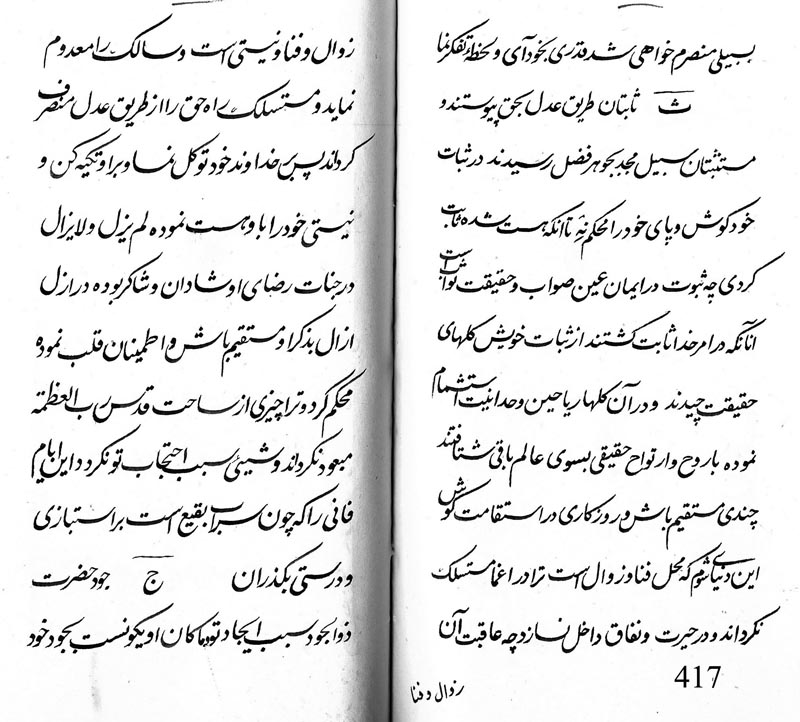 بسبیلی منصرم خواهی شد قدری بخود آی و لحظهٔ تفکر نما
ث ثابتان طریق عدل بحق پیوستند و
مستثبتان سبیل مجد بجوهر فضل رسیدند در ثبات
خود کوش و پای خود را محکم نه تا آنکه هست شده ثابت
کردی چه ثبوت در ایمان عین صواب و حقیقت ثواب است
آنانکه در امر خدا ثابت گشتند از ثبات خویش کلهای
حقیقت چیدند و در آن کلها ریاحین وحدانیت استشمام
نموده با روح وارتواح حقیقی بسوی عالم باقی شتافتند
چندی مستقیم باش و روزکاری در استقامت کوش
این دنیای شوم که محل فنا و زوال است ترا در اغما منسلک
نکرداند و در حیرت و نفاق داخل نسازد چه عاقبت آن
417
زوال و فنا
زوال و فنا و نیستی است و سالک را معدوم
نماید و منسلک راه حق را از طریق عدل منصرف
کرداند پس بر خداوند خود توکل نما و بر او تکیه کن و
نیستی خود را با او هست نموده لم یزل و لایزال
در جنات رضای او شادان و شاکر بوده در ازل
ازال بذکر او مستقیم باش و اطمینان قلب نموده
محکم کرد و ترا چیزی از ساحت قدس رب العظمه
مبعود نکرداند و شیئی سبب احتجاب تو نکردد این ایام
فانی را که چون سراب بقیع است براستبازی
و درستی بگذران ج جود حضرت
ذوالجود سبب ایجاد تو و ماکان او یکونست بجود خود